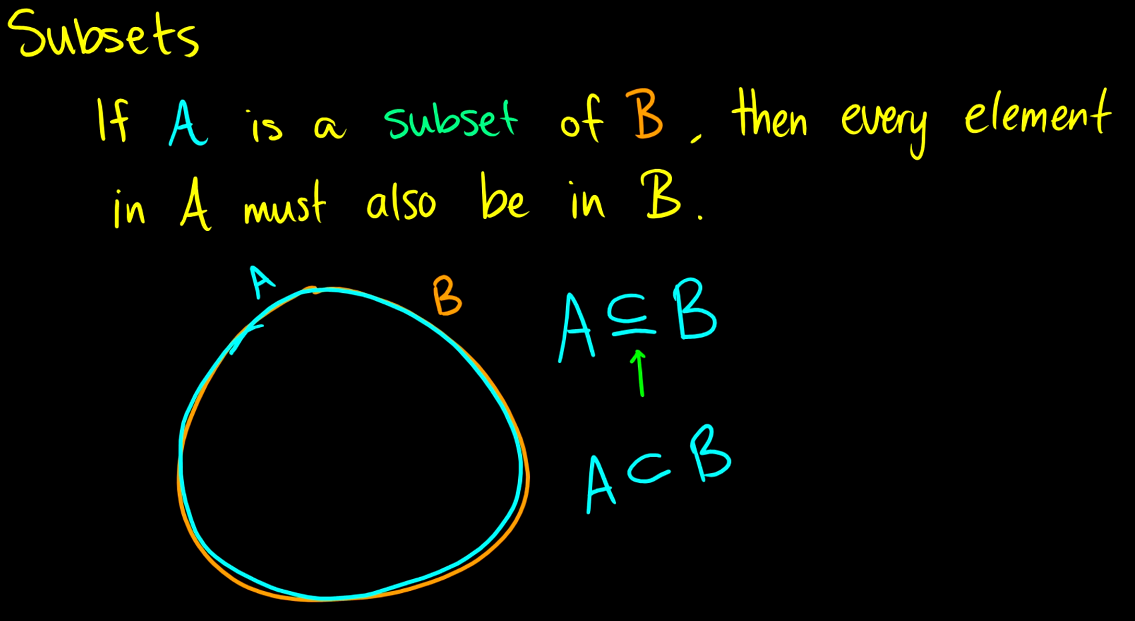 Subsets
If A is a subset of B, then every element
in A must also be in B.
A
B
A ⊆ B
A ⊂ B